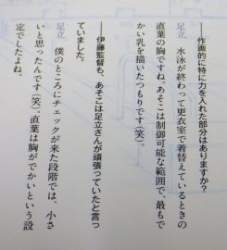 ――作画的に特に力を入れた部分はありますか？
足立　水泳が終わって更衣室で着替えているときの
直葉の胸ですね。あそこは制御可能な範囲で、最もで
かい乳を描いたつもりです(笑)。
――伊藤監督も、あそこは足立さんが頑張っていたと言っ
ていました。
足立　僕のところにチェックが来た段階では、小さ
いと思ったんです(笑)。直葉は胸がでかいという設
定でしたよね。